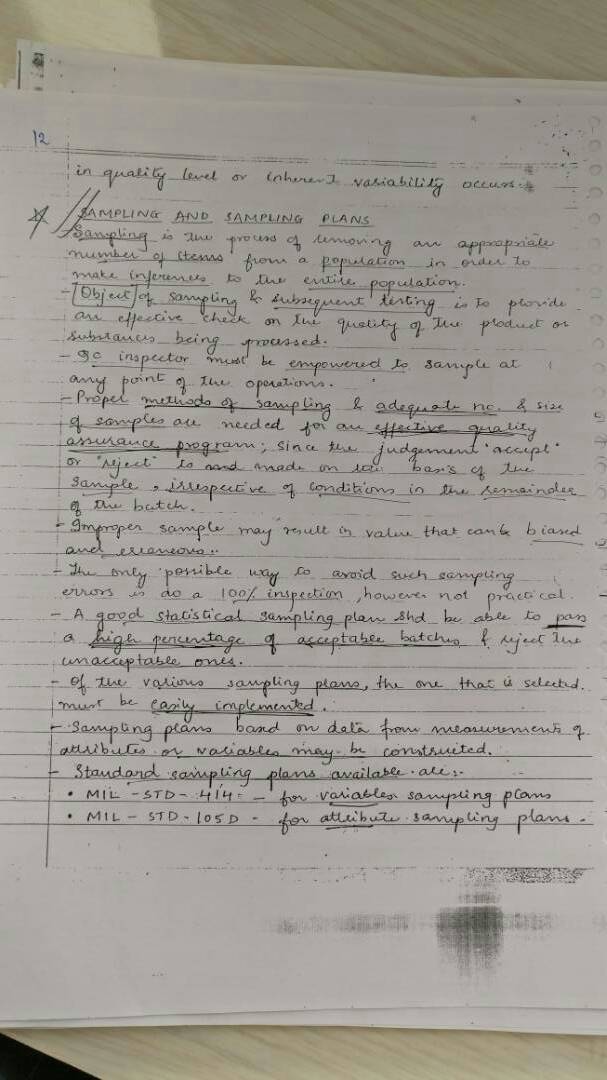 12
in quality level or inherent variability occurs.
SAMPLING AND SAMPLING PLANS
Sampling is the process of removing an appropriate
number of items from a population in order to
make inferences to the entire population.
- Object of sampling & subsequent testing is to provide
an effective check on the quality of the product or
substances being processed.
- QC inspector must be empowered to sample at
any point of the operations.
- Proper methods of sampling & adequate no. & size
of samples are needed for an effective quality
assurance program; since the judgement "accept"
or "reject" is made on the basis of the
sample, irrespective of conditions in the remainder
of the batch.
- Improper sample may result in value that can be biased
and erroneous.
- The only possible way to avoid such sampling
errors is do a 100% inspection, however not practical.
- A good statistical sampling plan shd be able to pass
a high percentage of acceptable batches & reject the
unacceptable ones.
- Of the various sampling plans, the one that is selected
must be easily implemented.
- Sampling plans based on data from measurements of
attributes or variables may be constructed.
- Standard sampling plans available are:-
• MIL-STD-414 - for variables sampling plans
• MIL-STD-105D - for attribute sampling plans.